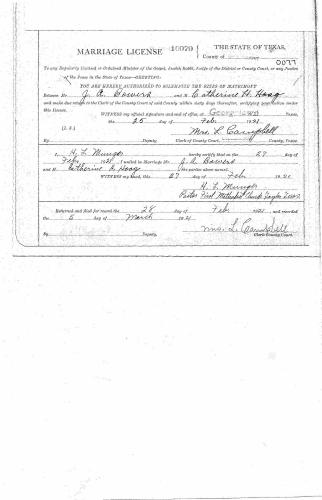 MARRIAGE LICENSE 10079 THE STATE OF TEXAS,
County of
0077
To any Regularly Licensed or Ordained Minister of the Gospel, Jewish Rabbi, Judge of the District or County Court, or any Justice
of the Peace in the State of Texas—GREETING:
YOU ARE HEREBY AUTHORIZED TO SOLEMNIZE THE RITES OF MATRIMONY
Between Mr. J. A. Bowers and M Catherine H. Hoag
and make due return to the Clerk of the County Court of said County within sixty days thereafter, certifying your action under
this License.
WITNESS my official signature and seal of office at Georgetown
the 25 day of Feb 1921
(L.S.) Mrs. L. Campbell
By Deputy. Clerk of County Court, County, Texas.
I, H. L. Munger hereby certify that on the 27 day of
Feb 1921, I united in Marriage Mr. J. A. Bowers
and M Catherine H. Hoag the parties above named.
WITNESS my hand, this 27 day of Feb 1921
H. L. Munger
Pastor First Methodist Church Taylor Texas
Returned and filed for record the 28 day of Feb 1921, and recorded
the 5 day of March 1921
Mrs. L. Campbell
By Deputy. Clerk County Court.